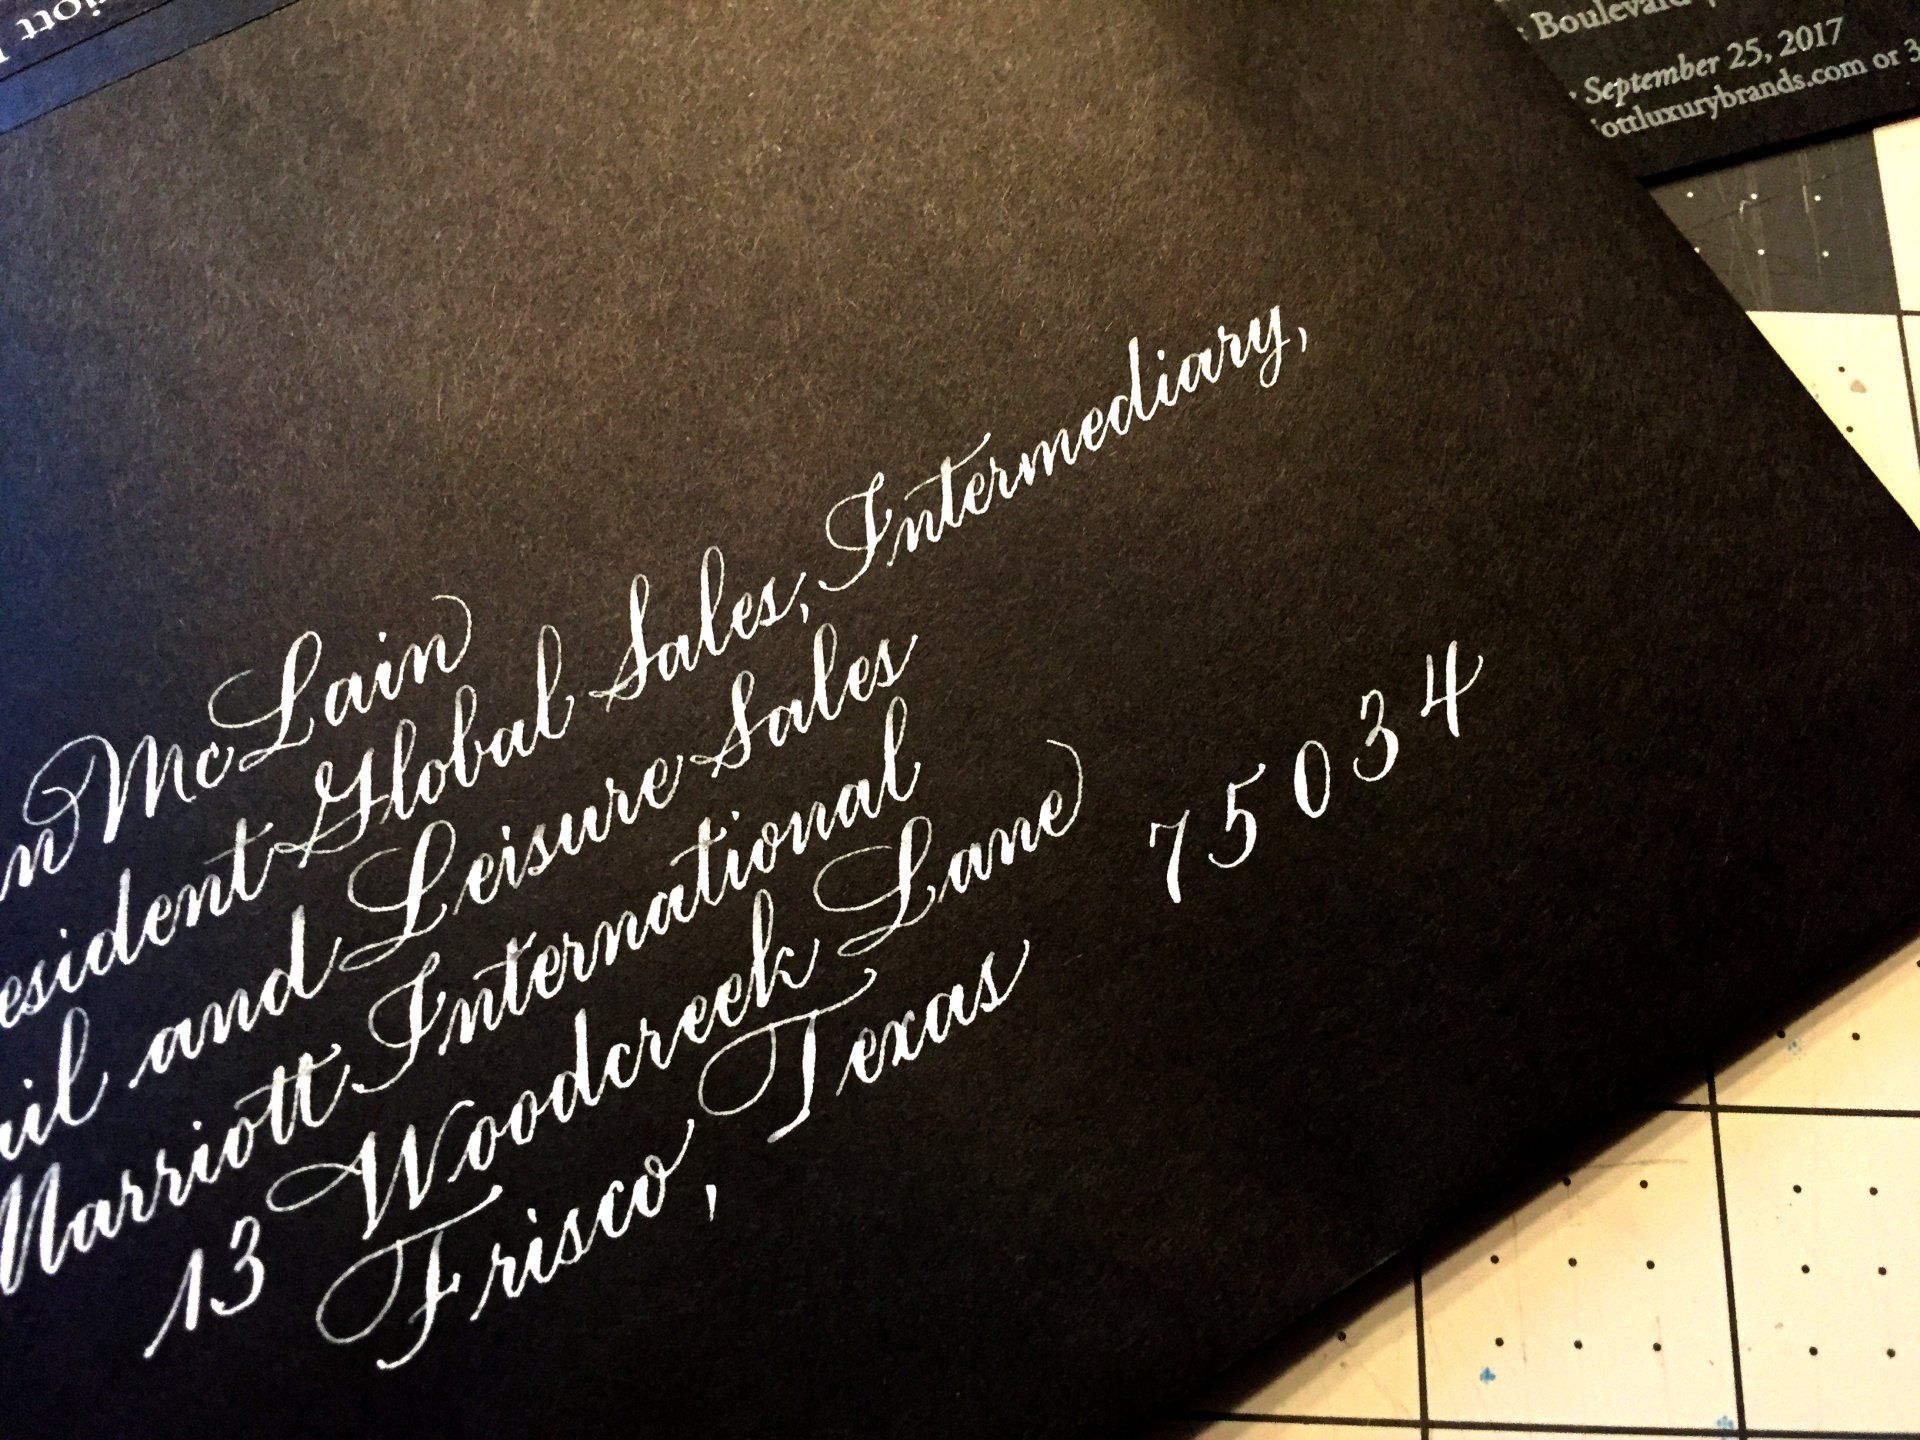 iott
Boulevard
September 25, 2017
iottluxurybrands.com or 3
n McLain
esident Global Sales, Intermediary,
ail and Leisure Sales
Marriott International
13 Woodcreek Lane
Frisco, Texas 75034